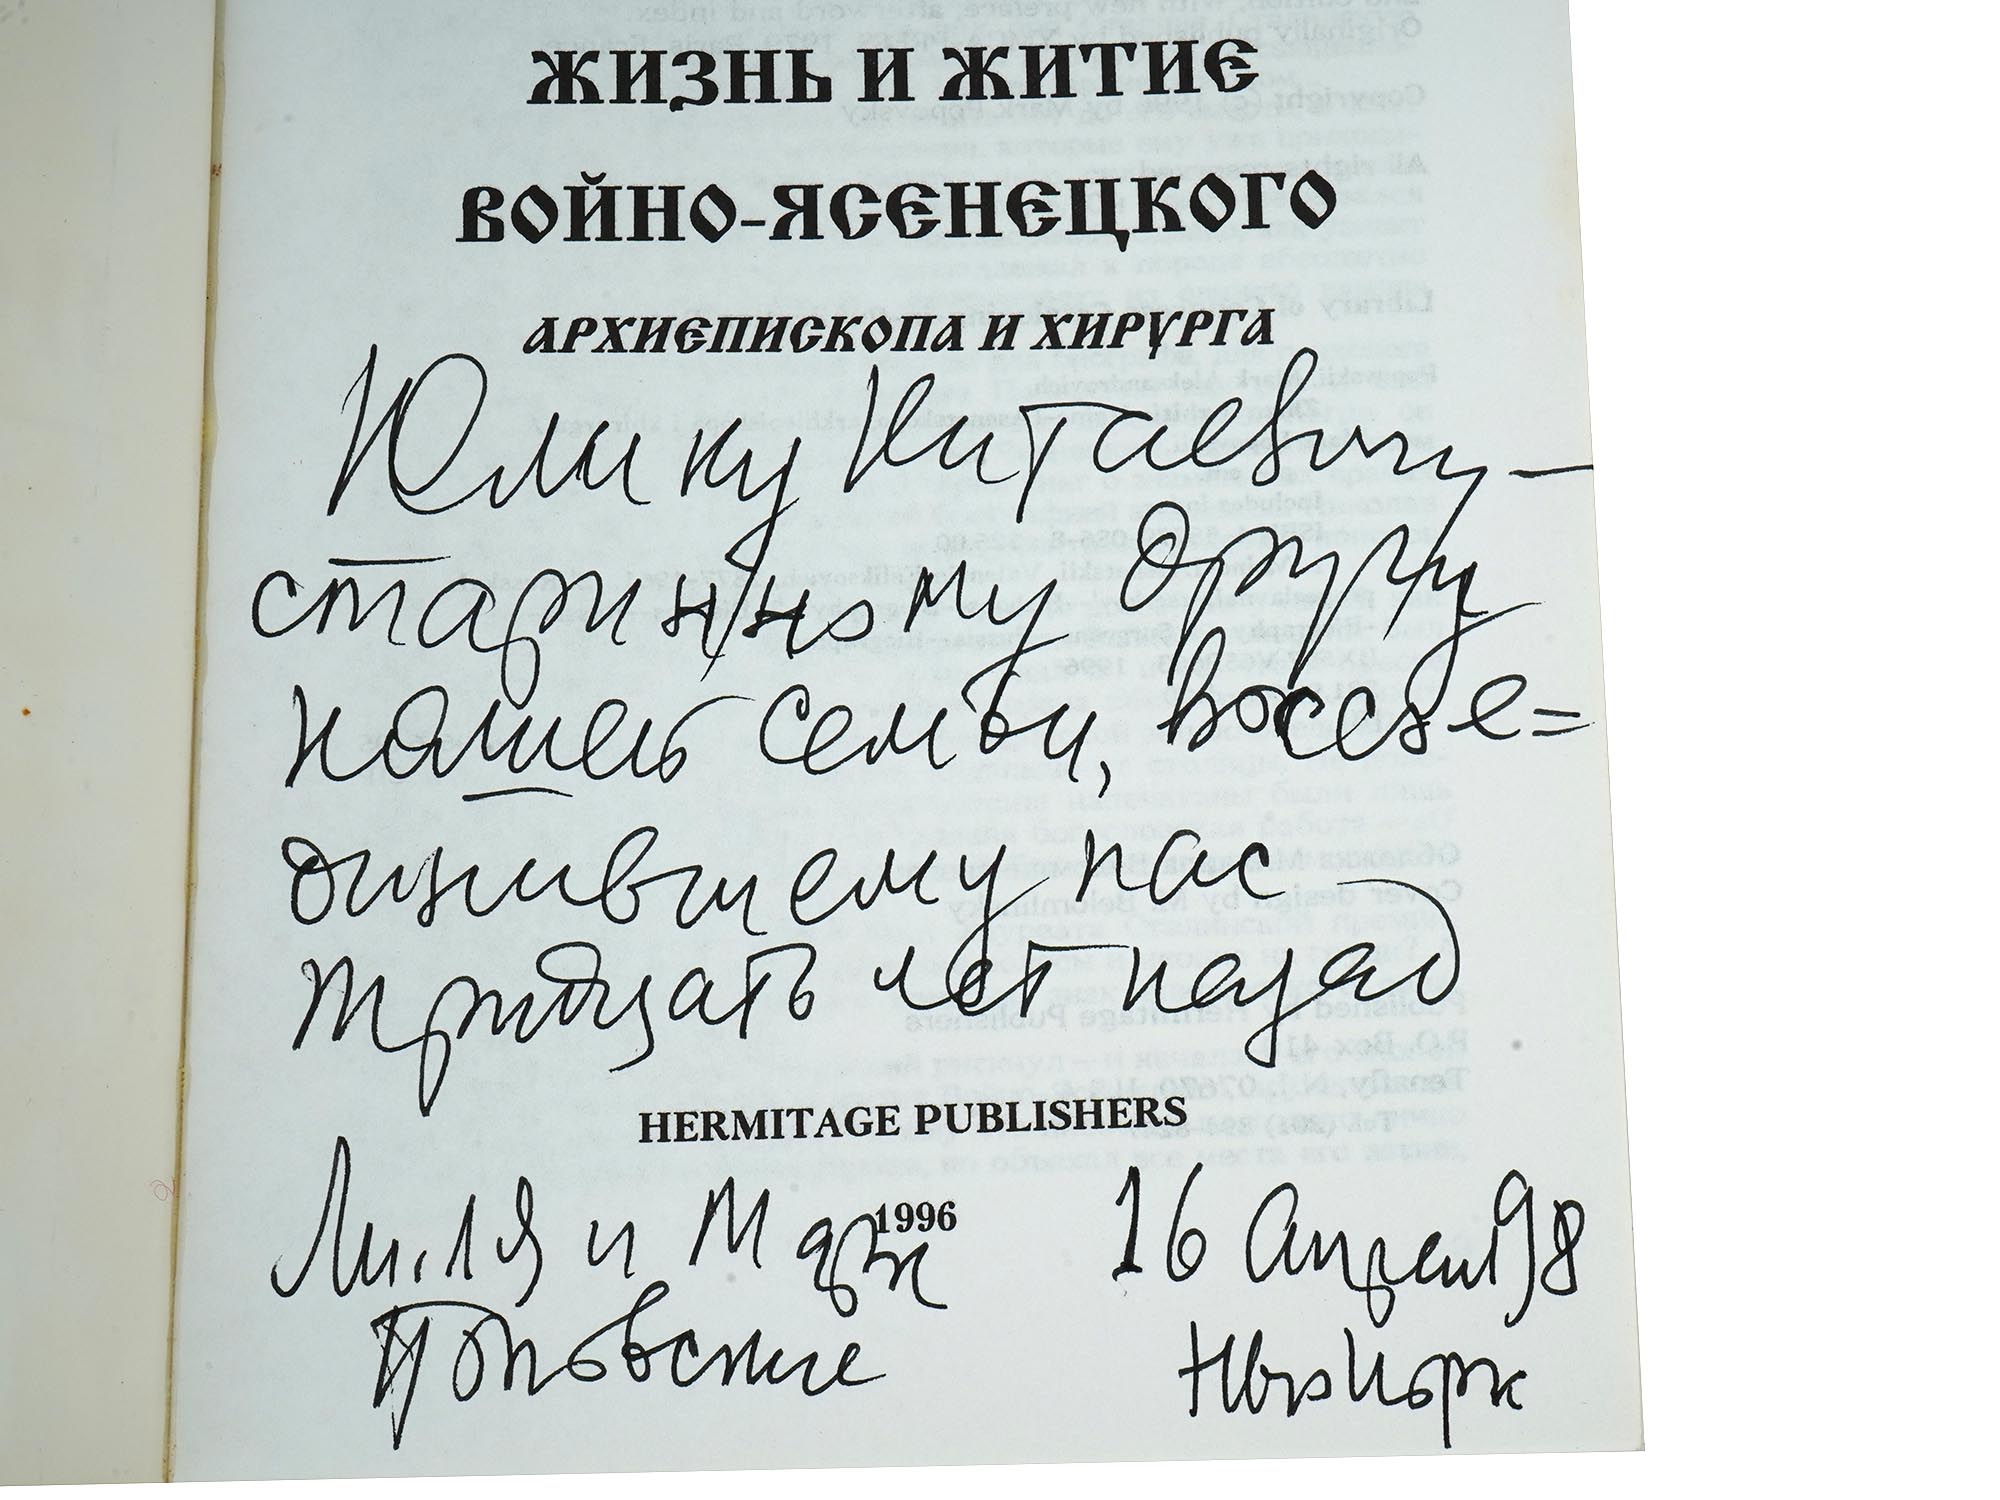 ЖИЗНЬ И ЖИТИЕ
ВОЙНО-ЯСЕНЕЦКОГО
АРХИЕПИСКОПА И ХИРУРГА
Юлику Китаевичу –
старинному другу
нашей семьи, воссое=
динившему нас
тридцать лет назад
HERMITAGE PUBLISHERS
1996
Лиля и Марк
Поповские
16 апреля 98
Нью Йорк